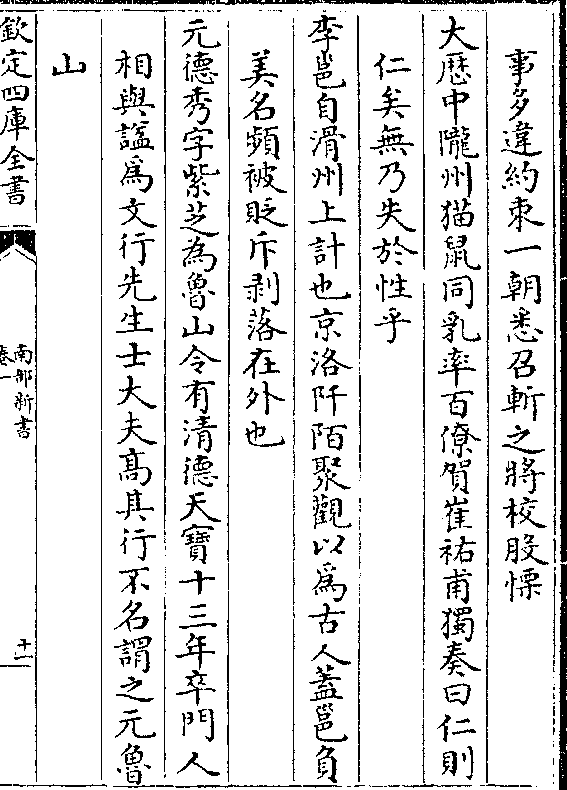 事多違約束一朝悉召斬之將校股慄
大厯中隴州猫鼠同乳率百僚賀崔祐甫獨奏曰仁則
仁矣無乃失於性乎
李邕自滑州上計也京洛阡陌聚觀以爲古人蓋邕負
美名頻被貶斥剥落在外也
元德秀字紫芝為魯山令有清德天寳十三年卒門人
相與諡爲文行先生士大夫髙其行不名謂之元魯
山
欽定四庫全書
南部新書
卷一
十一